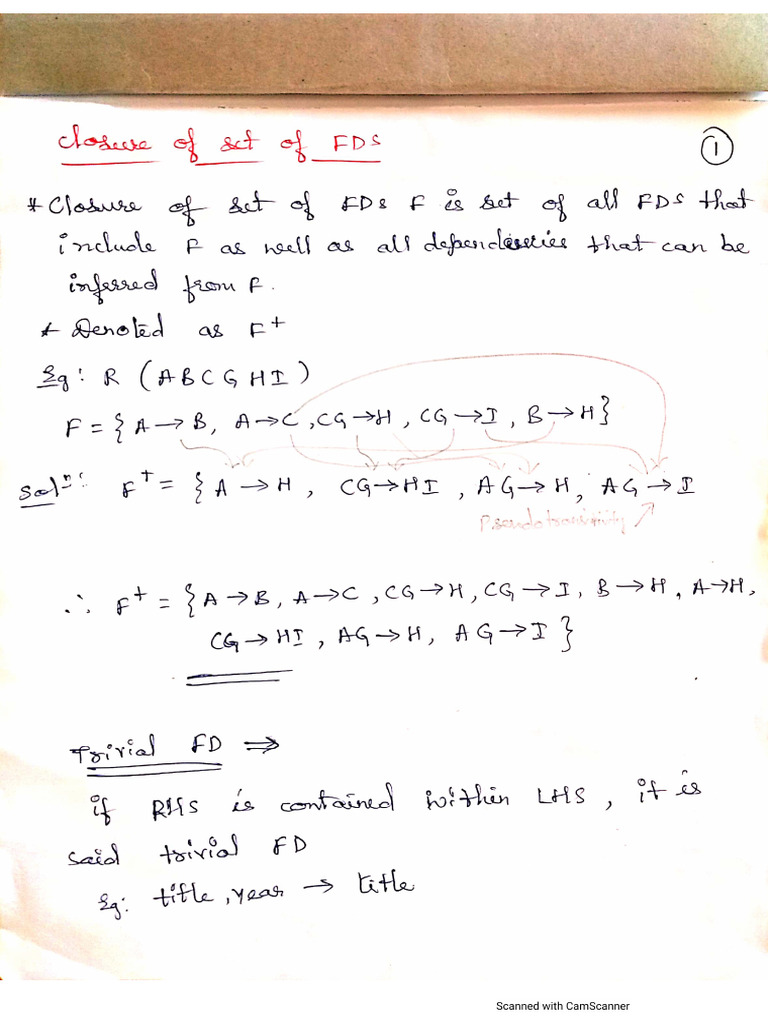 Closure of set of FDS
①
* Closure of set of FDs F is set of all FDS that
include F as well as all dependencies that can be
inferred from F.
* Denoted as F⁺
Eg: R (ABCGHI)
F = { A → B, A → C, CG → H, CG → I, B → H}
Solⁿ: F⁺ = { A → H, CG → HI, AG → H, AG → I
Pseudotransitivity
∴ F⁺ = { A → B, A → C, CG → H, CG → I, B → H, A → H,
CG → HI, AG → H, AG → I }
Trivial FD ⇒
if RHS is contained within LHS, it is
said trivial FD
Eg: title, year → title
Scanned with CamScanner